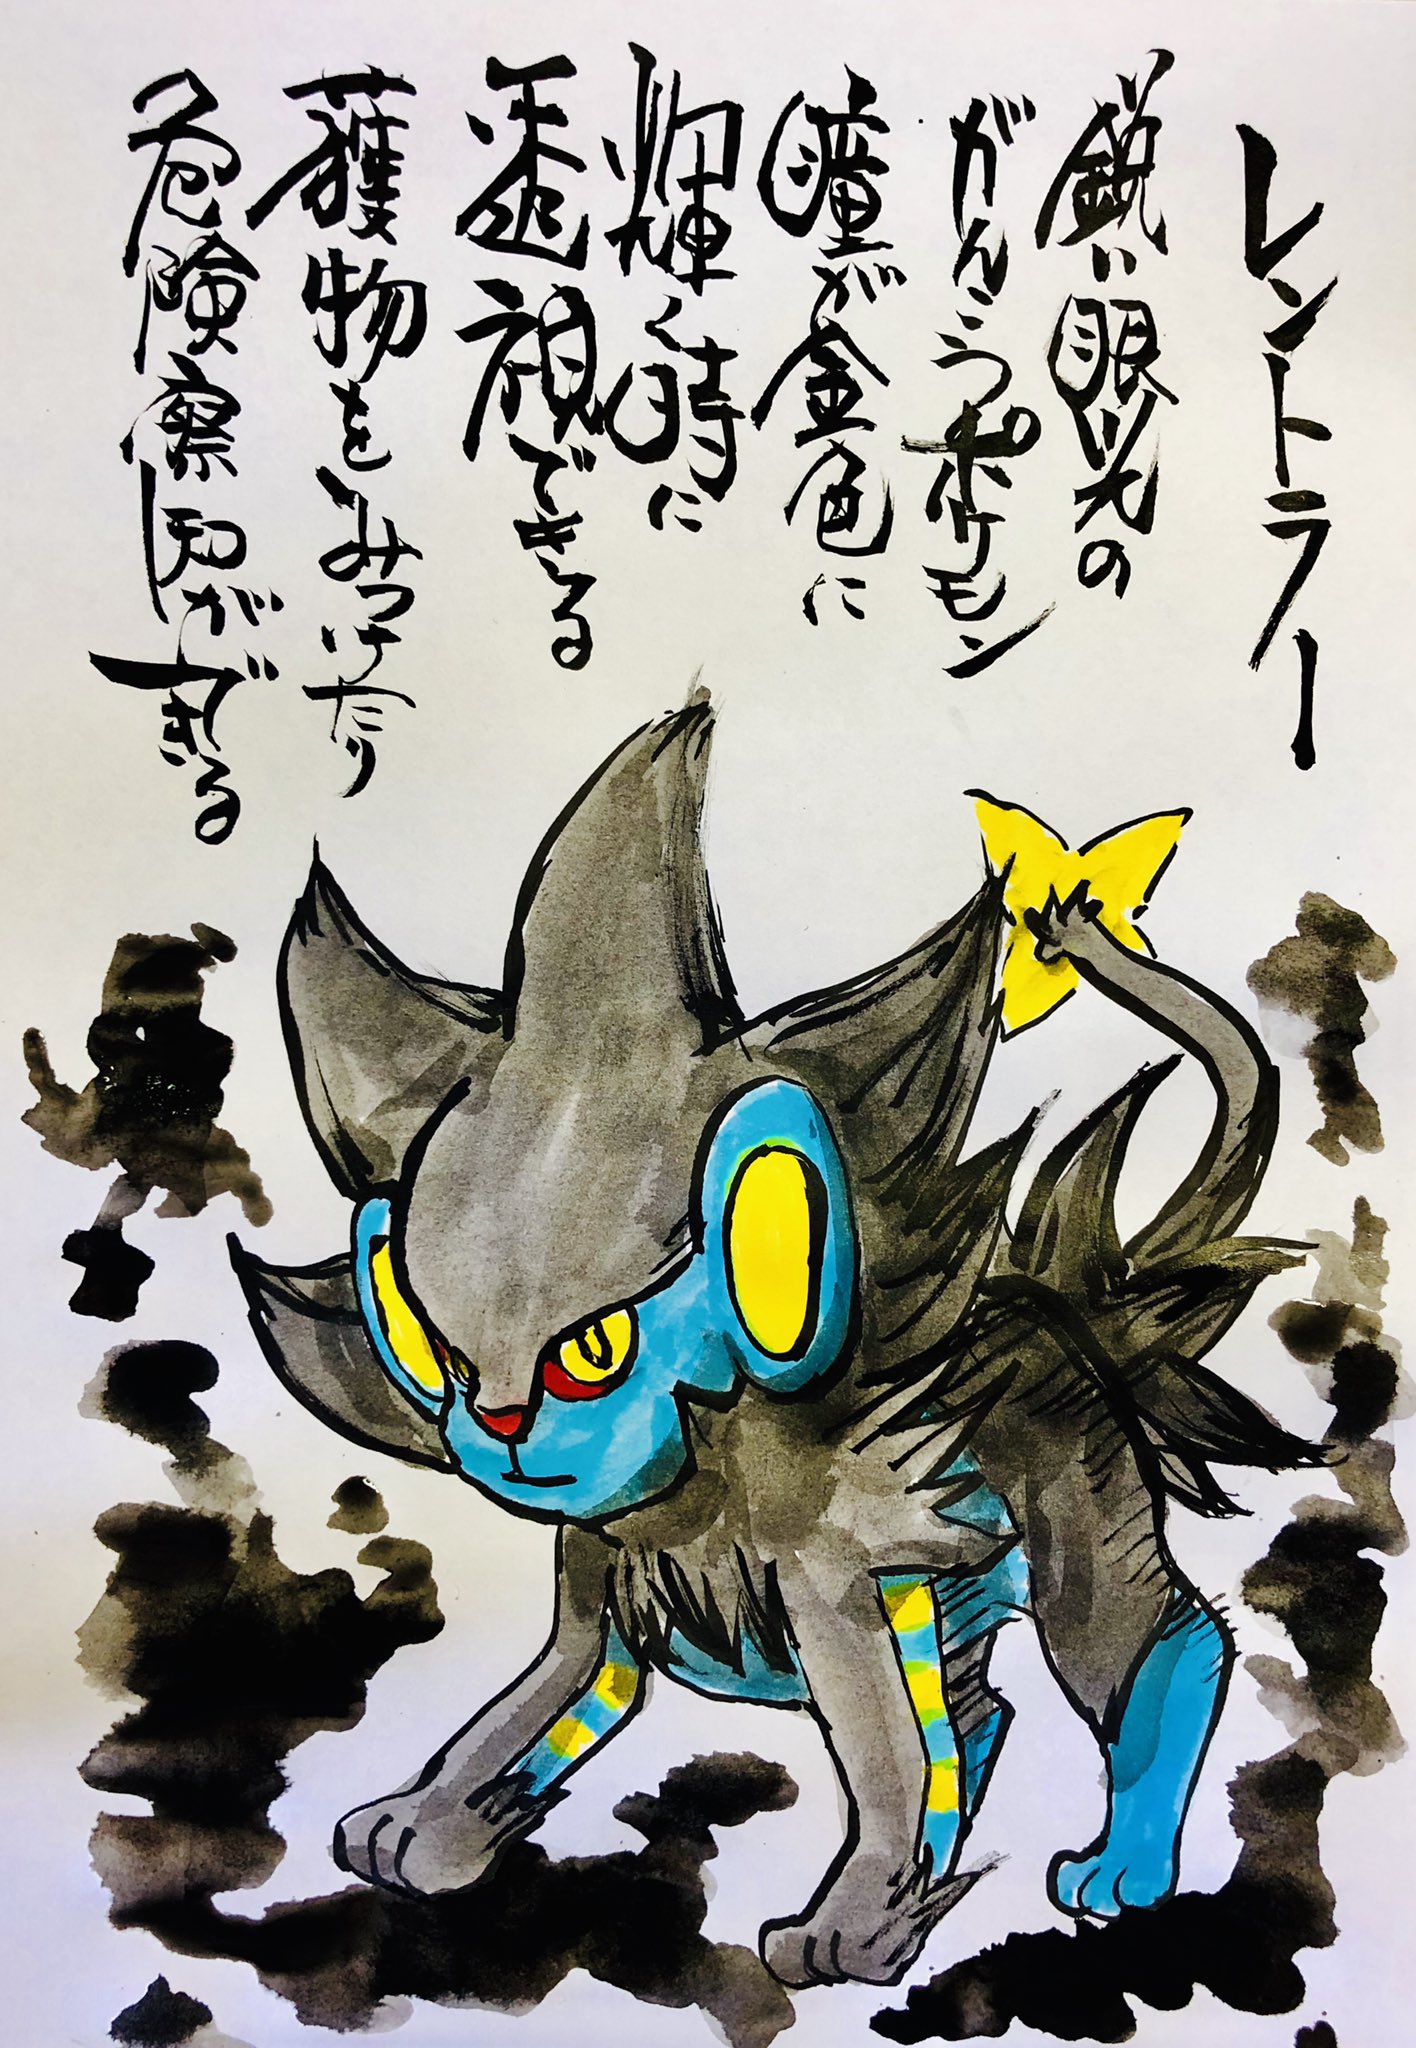 レントラー
鋭い眼光の
がんこうポケモン
瞳が金色に
輝く時に
透視できる
獲物をみつけたり
危険察知ができる